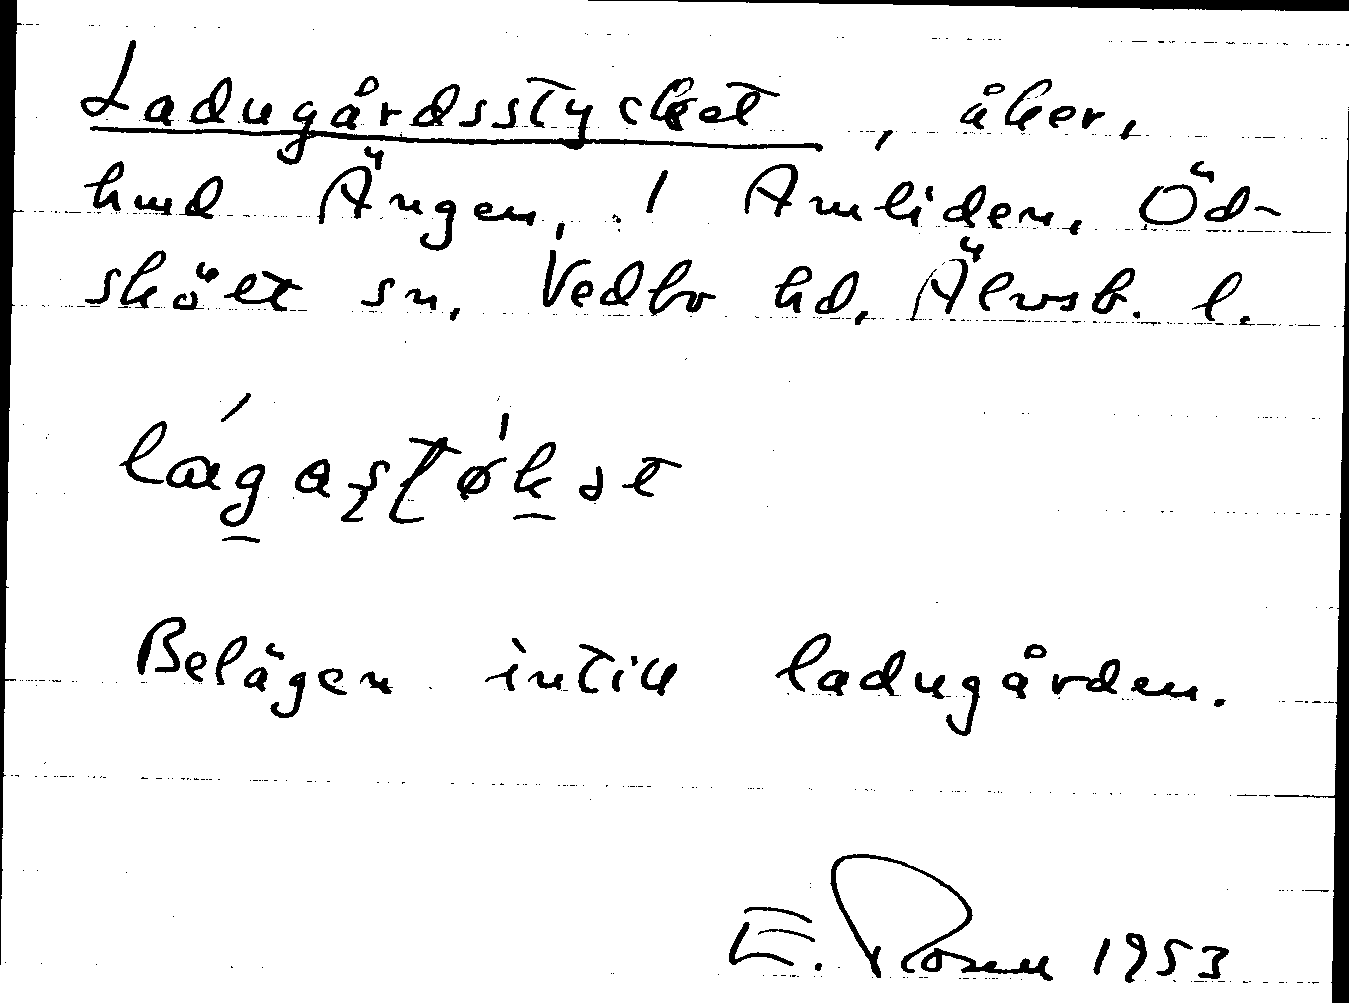 Ladugårdsstycket, åker,
hmd Ängen, 1 Amliden, Öd-
skölt sn, Vedbo hd, Älvsb. l.
Belägen intill ladugården.
E. Rosell 1953